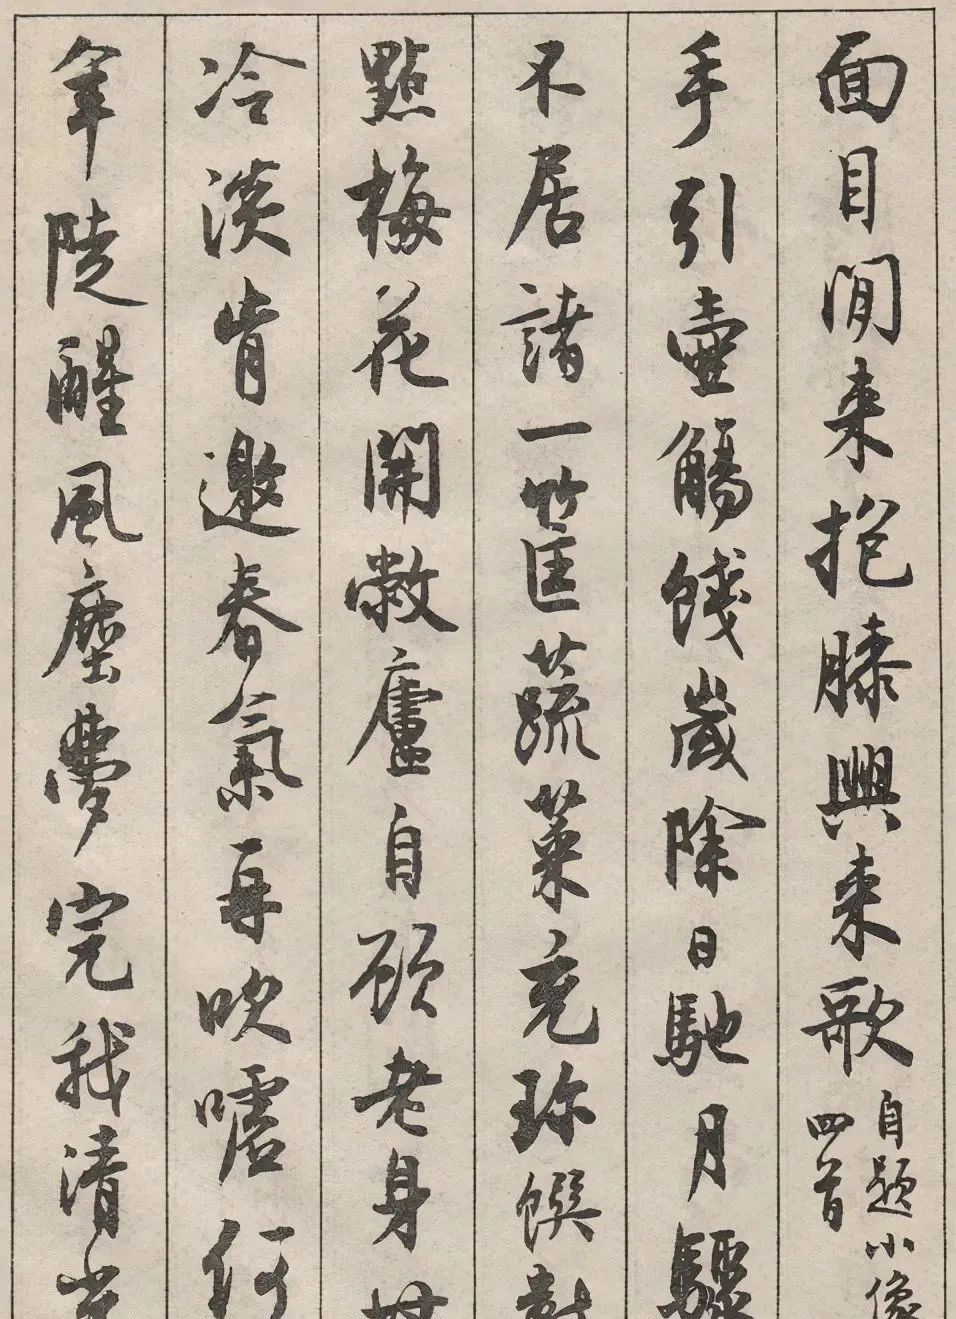 面目閒来抱膝興来歌
自題小像
四首
手引壺觴餞歲除日馳月驟
不居諸一筐蔬菜充珍饌對
點梅花開敝廬自顧老身
冷淡肯邀春氣再吹噓何
年陡醒風塵夢完我清